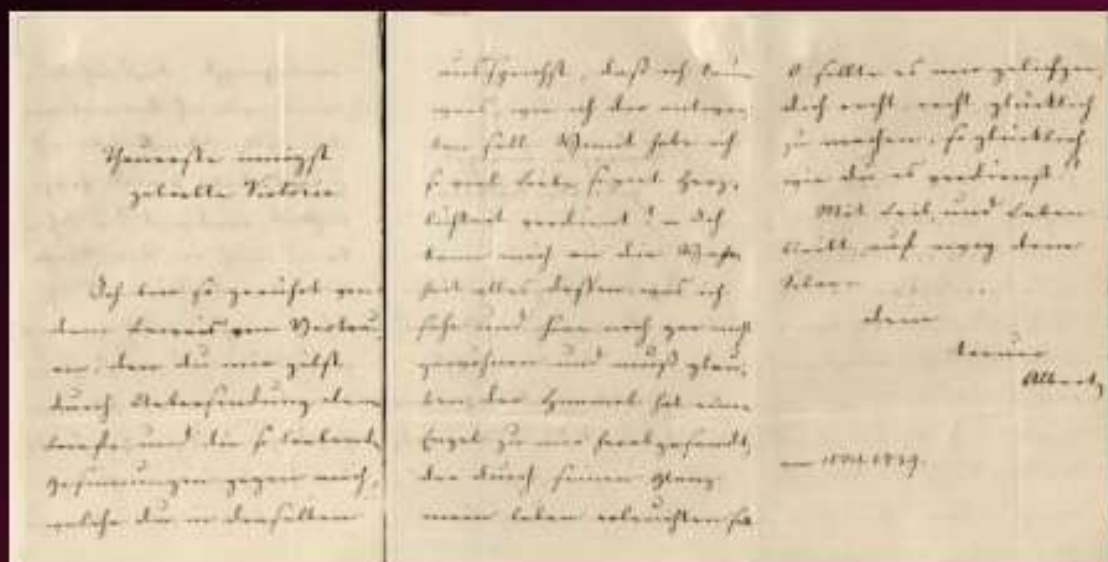 Theuerste innigst
geliebte Victoria
Ich bin so gerührt von
dem Beweis von Vertrau,
en, den du mir gibst
durch Uebersendung
Briefe und die so liebende
Gesinnungen gegen mich,
welche du in denselben
aussprichst, daß ich kaum
weis, wie ich dir antwor,
ten soll. Womit habe ich
so viel Liebe, so viel Herz,
lichkeit verdient! – Ich
kann mich an die Wahr,
heit alles dessen was ich
sehe und höre noch gar nicht
gewöhnen und muß glau,
ben, der Himmel hat einen
Engel zu mir herabgesandt,
der durch seinen Glanz
mein Leben erleuchten soll
O sollte es mir gelingen,
dich recht, recht glücklich
zu machen, so glücklich
wie du es verdienst!!
Mit Leib und Leben
bleibt auf ewig dein
Sclave
dein
treuer
Albert
1839.